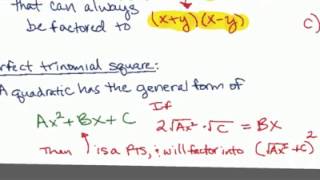 that can always
be factored to (x+y)(x-y)
c)
erfect trinomial square:
A quadratic has the general form of
If
Ax²+Bx+C 2√Ax²·√C = BX
Then is a PTS, & will factor into (√Ax²+C)²